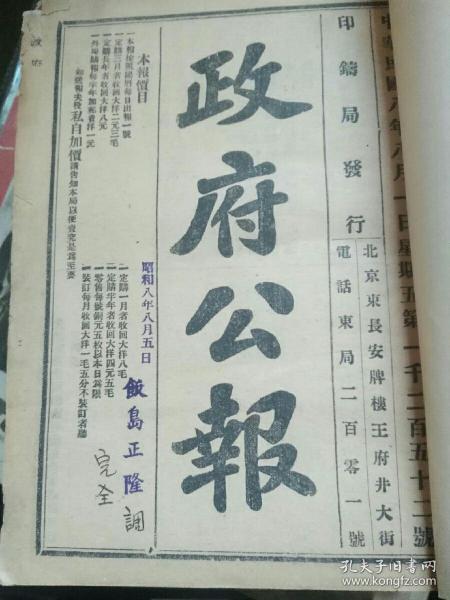 中華民國八年八月一日星期五第一千二百五十二號
印鑄局發行
北京東長安牌樓王府井大街
電話東局二百零一號
政府公報
本報價目
一定購三月者收回大洋二元三毛
一定購長年者收回大洋八元
一外埠購報每半年加郵費洋一元
如送報夫役私自加價請告知本局以便查究是為至要
一定購一月者收回大洋八毛
一定購半年者收回大洋四元五毛
一零售每號銅元五枚以本日為限
一裝訂每月收回大洋一毛五分不裝訂者聽
昭和八年八月五日
飯島正隆調
完全
孔夫子旧书网
www.kongfz.com